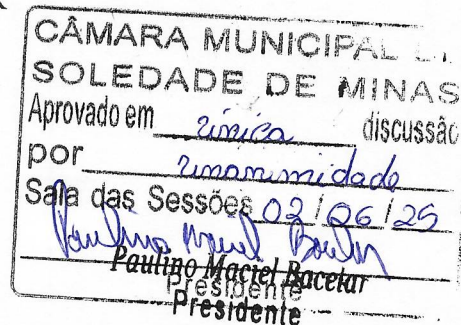 CÂMARA MUNICIPAL
SOLEDADE DE MINAS
Aprovado em única discussão
por unanimidade
Sala das Sessões 02/06/25
Paulino Maciel Bacelar
Presidente
Presidente